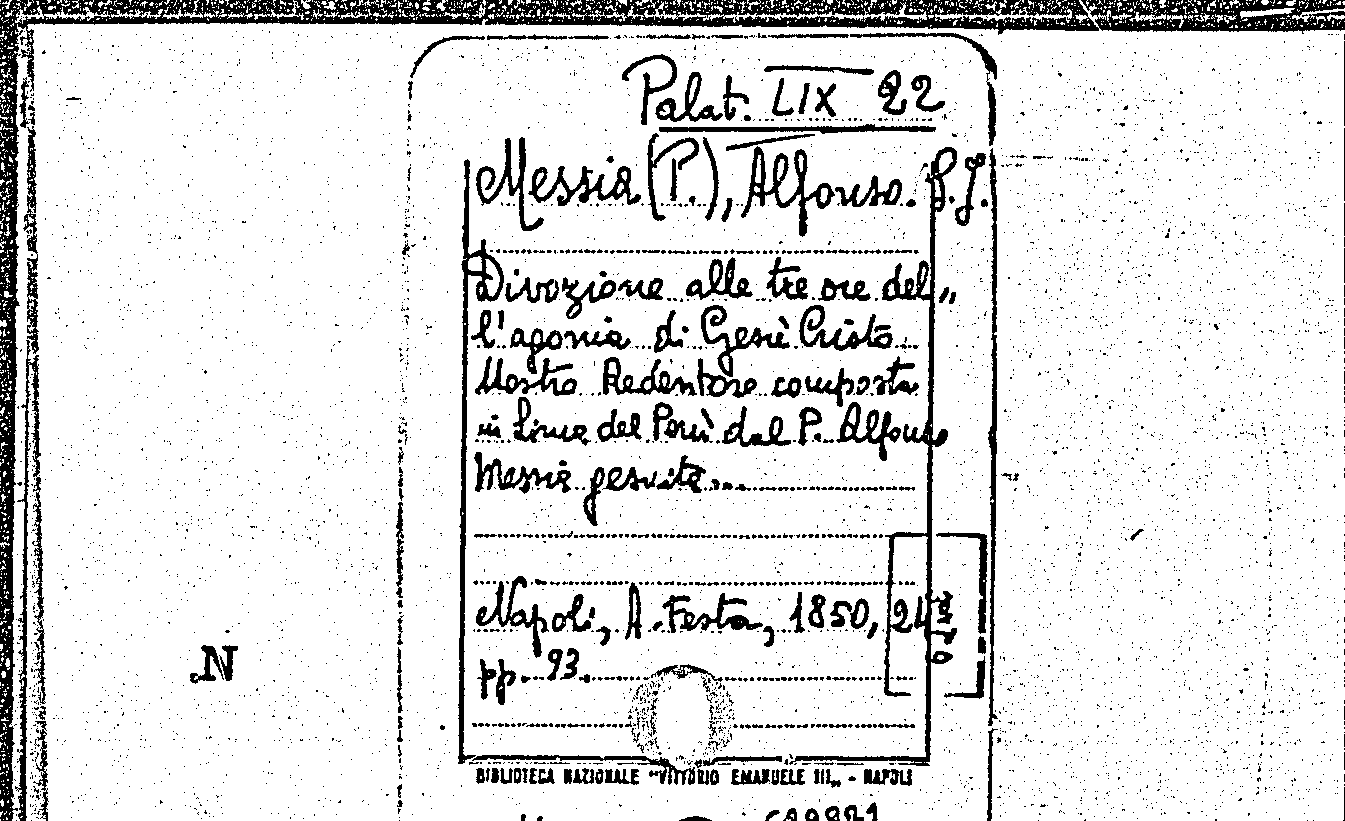 Palat. LIX 22
Messia (P.), Alfonso. S.J.
Divozione alle tre ore del„
l'agonia di Gesù Cristo
Nostro Redentore composta
in Lima del Perù dal P. Alfonso
Messia gesuita...
Napoli, A. Festa, 1850, 24
pp. 93.
N.
BIBLIOTECA NAZIONALE "VITTORIO EMANUELE III„ - NAPOLI